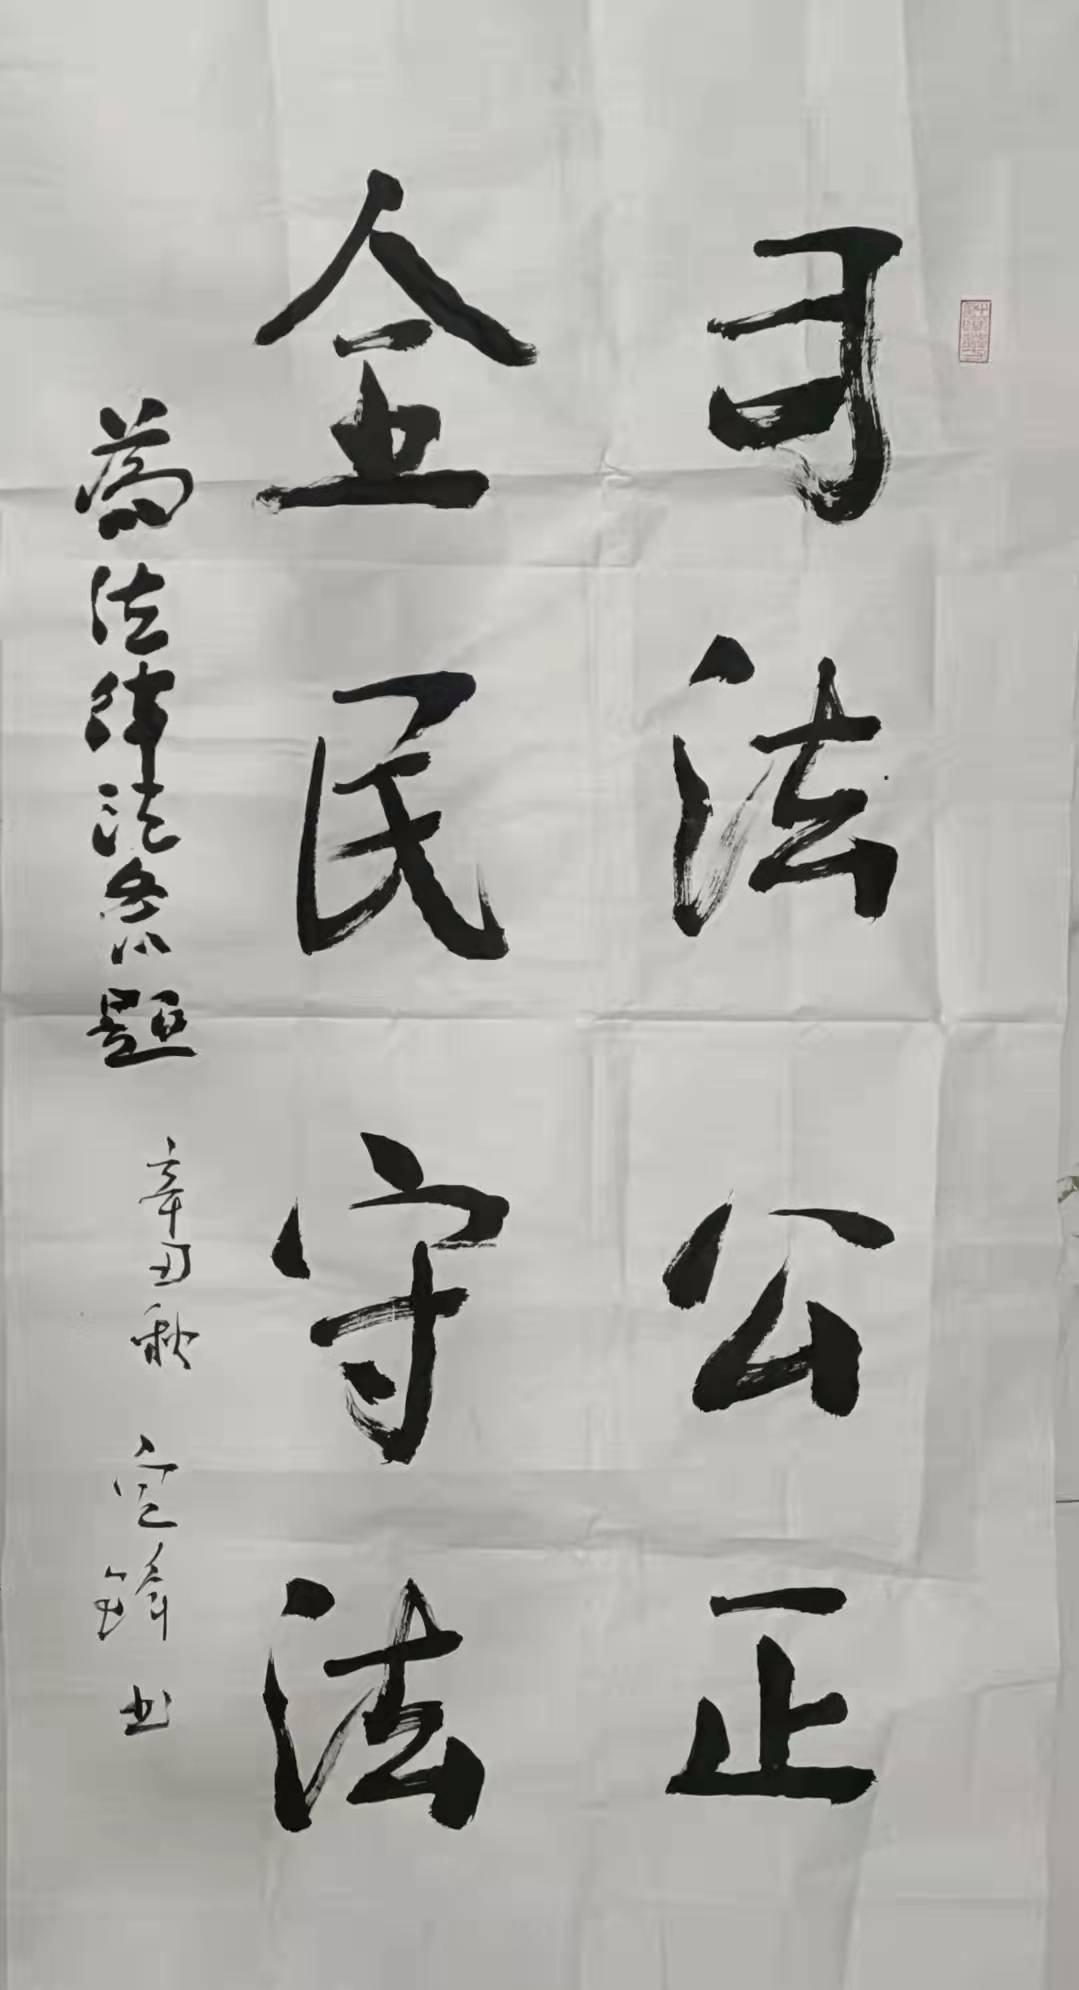 司法公正
全民守法
为法律法务题 辛丑秋 定锋书